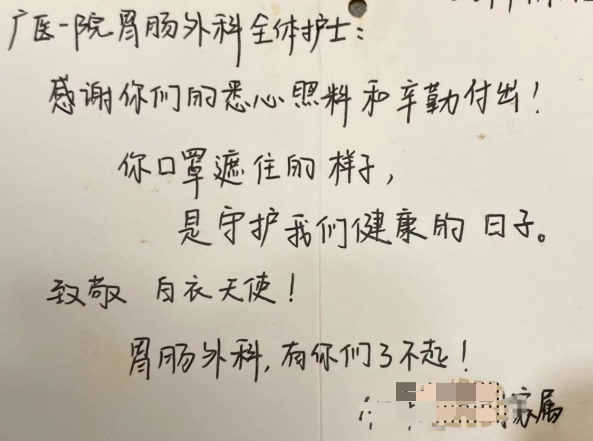 广医一院胃肠外科全体护士：
感谢你们的悉心照料和辛勤付出！
你口罩遮住的样子，
是守护我们健康的日子。
致敬 白衣天使！
胃肠外科，有你们了不起！
家属